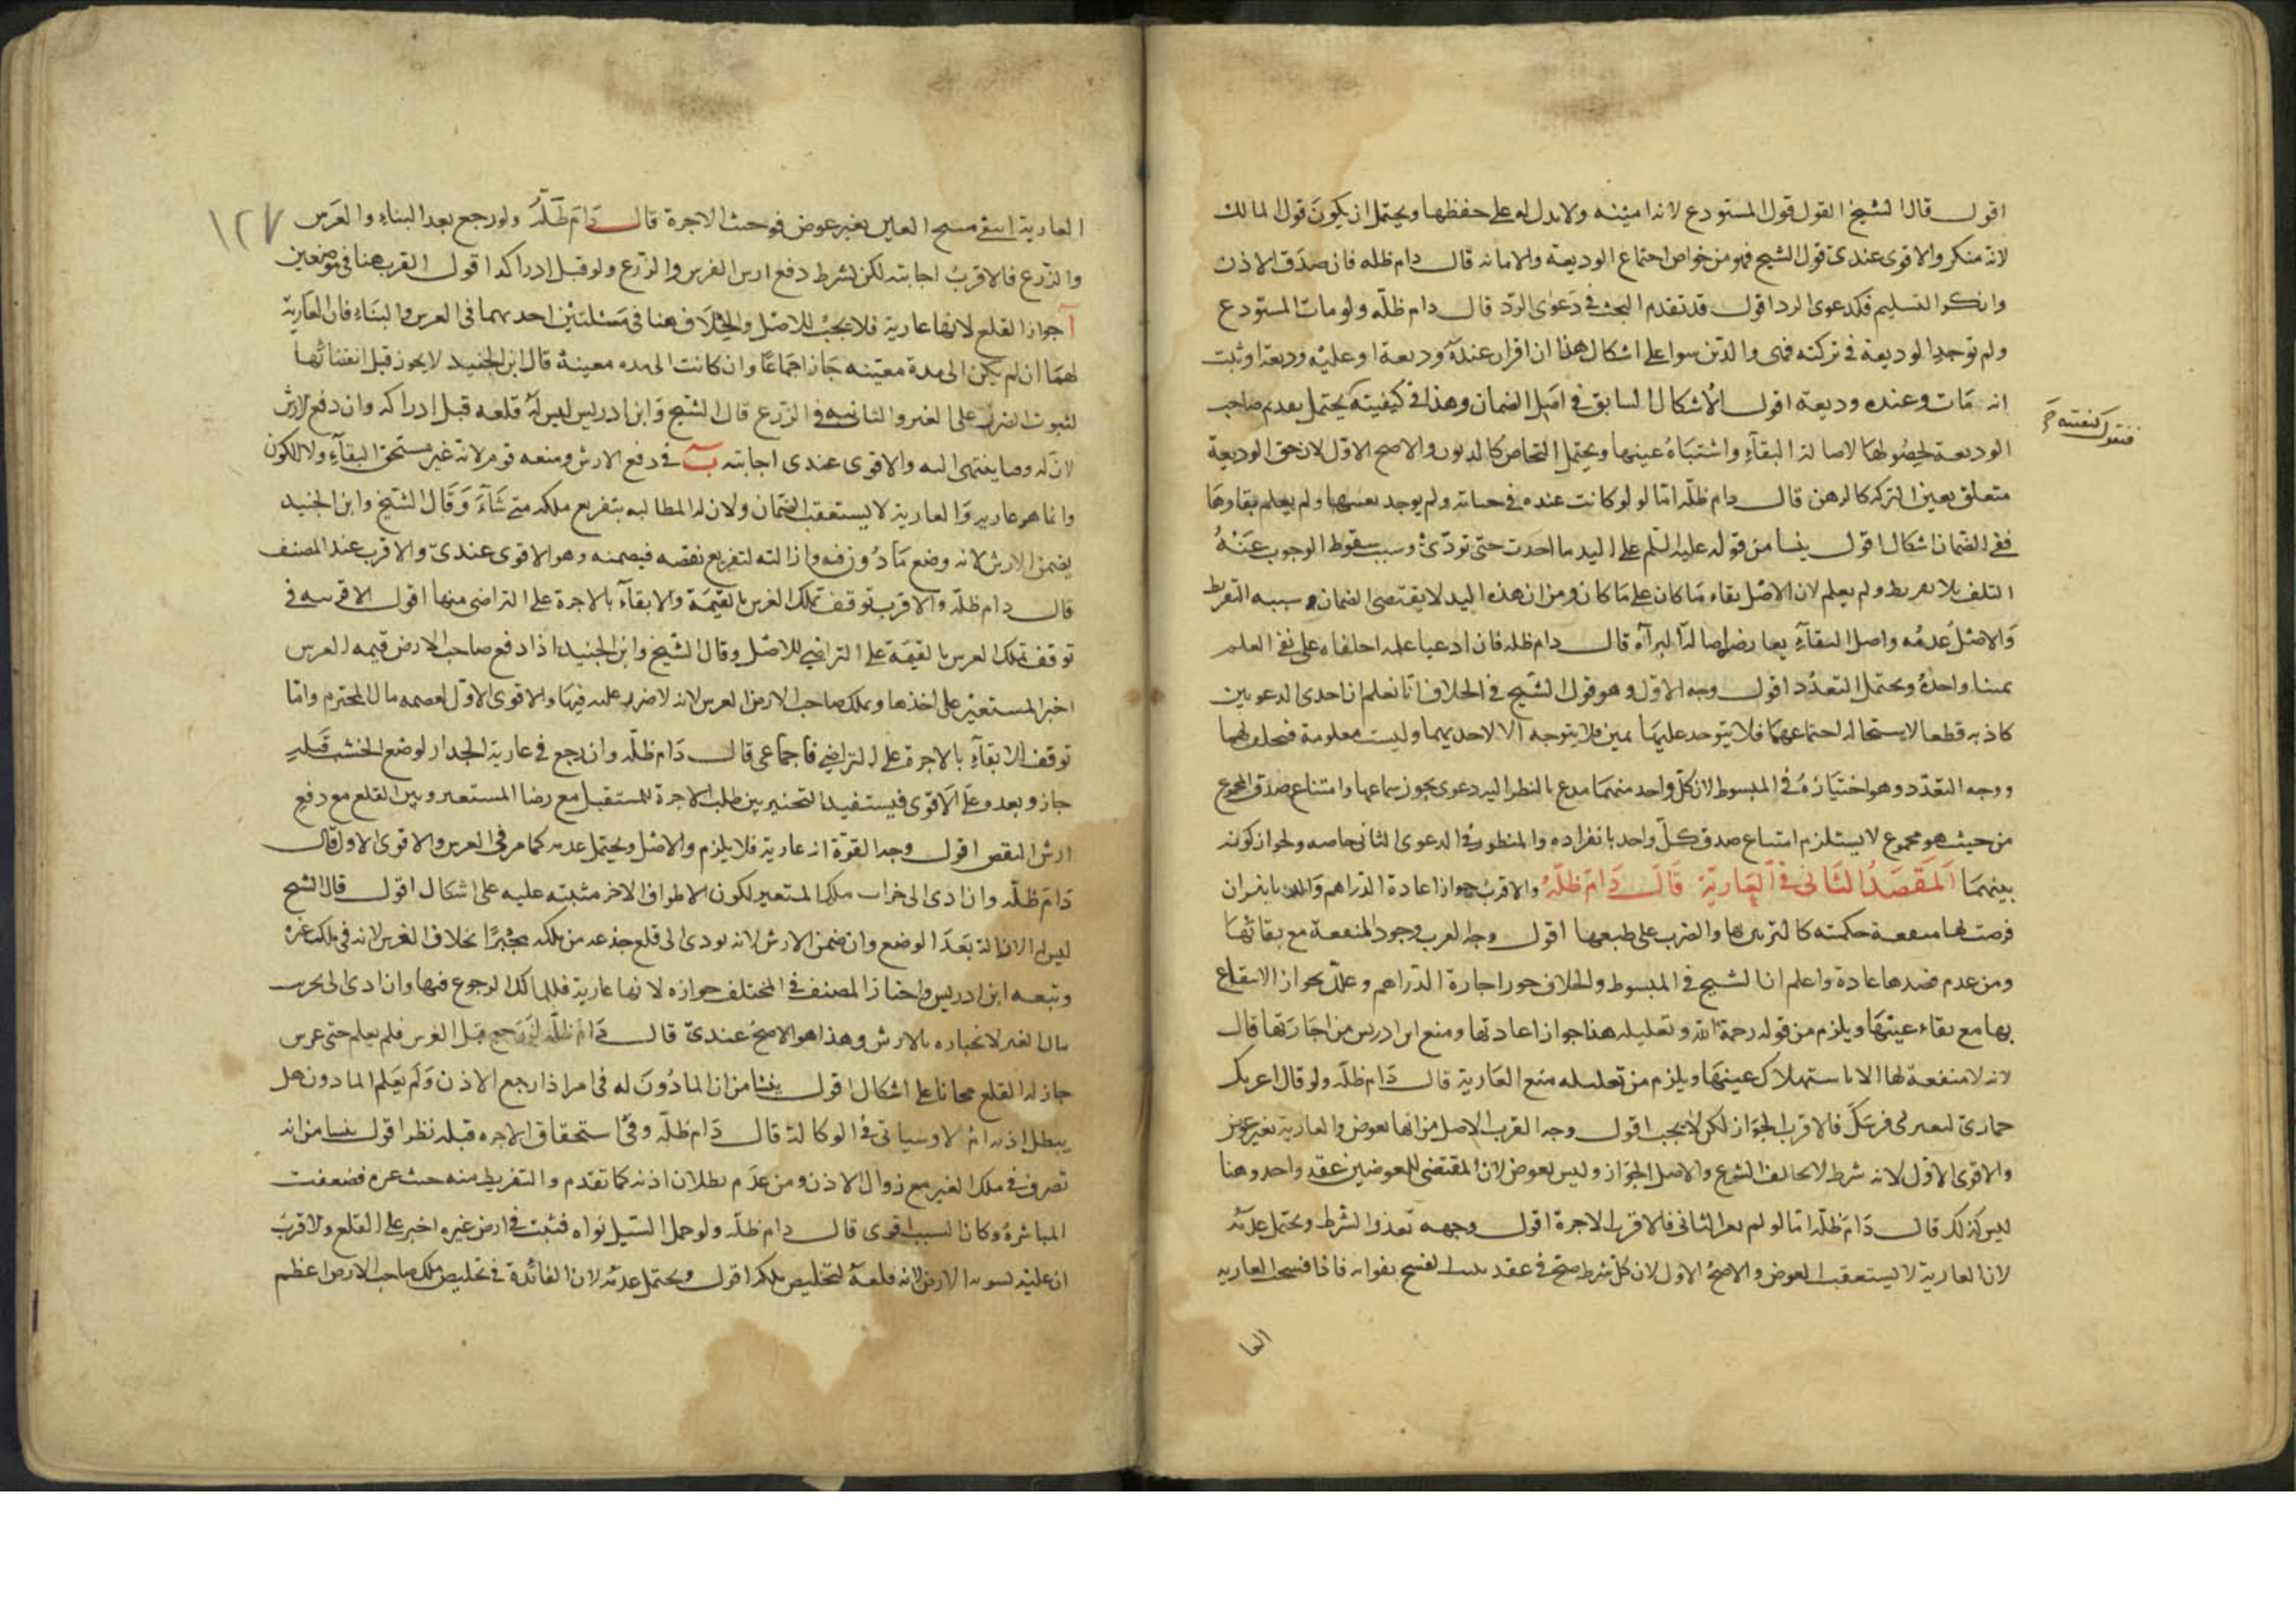 اقول قال الشيخ القول قول المستودع لانه امينه ولا بدل له على حفظها ويحتمل ان يكون قول المالك
لانه منكر والاقوى عندى قول الشيخ فهو من خواص اجتماع الوديعة والامانه قال دام ظله فان صدق الاذن
وانكر التسليم فكدعوى الرد اقول قد تقدم البحث فى دعوى الرد قال دام ظله ولو مات المستودع
ولم توجد الوديعة فى تركته فهى والدين سوا على اشكال هذا ان اقر ان عنده وديعة او عليه وديعة او ثبت
انه مات وعنده وديعة اقول الاشكال السابق فى اصل الضمان وهذا فى كيفيته يحتمل تقديم صاحب
الوديعة لحصولها لاصالة البقاء واشتباه عينها ويحتمل التحاص كالديون والاصح الاول لان حق الوديعة
متعلق بعين التركه كالرهن قال دام ظله اما لو كانت عنده فى حياته ولم يوجد بعينها ولم يعلم بقاوها
ففى الضمان اشكال اقول ينشا من قوله عليه السلم على اليد ما اخذت حتى تودى وسبب سقوط الوجوب عنه
التلف بلا تفريط ولم يعلم لان الاصل بقاء ما كان على ما كان ومن ان هذه اليد لا يقتضى الضمان وسببه التفريط
والاصل عدمه واصل البقاء يعارضه اصالة البرآة قال دام ظله فان ادعيا علمه احلفاه على نفى العلم
يمينا واحدة ويحتمل التعدد اقول وجه الاول وهو قول الشيخ فى الخلاف انا نعلم ان احدى الدعويين
كاذبه قطعا لاستحالة اجتماعهما فلا يتوجه عليهما يمين فلا يتوجه الا لاحديهما وليست معلومة فيحلف لهما
ووجه التعدد وهو اختياره فى المبسوط لان كل واحد منهما مدع بالنظر اليه دعوى يجوز سماعها وامتناع صدق المجموع
من حيث هو مجموع لا يستلزم امتناع صدق كل واحد بانفراده والمنظور فى الدعوى الثانى خاصه ولجواز كونه
بينهما المقصد الثانى فى العارية قال دام ظله والاقرب جواز اعادة الدراهم والدنانير ان
فرضت لها منفعة حكميه كالتزين بها والضرب على طبعها اقول وجه القرب وجود المنفعة مع بقائها
ومن عدم قصدها عادة واعلم ان الشيخ فى المبسوط والخلاف جوز اجارة الدراهم وعلل بجواز الانتفاع
بها مع بقاء عينها ويلزم من قوله رحمة الله وتعليله هنا جواز اعادتها ومنع ابن ادريس من اجارتها قال
لانه لا منفعة لها الا باستهلاك عينها ويلزم من تعليله منع العارية قال دام ظله ولو قال اعيرك
حمارى لتعيرنى فرسك فالاقرب الجواز لكن لا يجب اقول وجه القرب الاصل من انها بعوض والعارية بغير عوض
والاقوى الاول لانه شرط لا يخالف الشرع والاصل الجواز وليس بعوض لان المقتضى للعوضين عقد واحد وهنا
ليس كذلك قال دام ظله اما لو لم يعر الثانى فالاقرب الاجرة اقول وجهه تعذر الشرط ويحتمل عدمه
لان العارية لا يستعقب العوض والاصح الاول لان كل شرط صح فى عقد يثبت الفسح بفواته فاذا فسحت العاريه
العا
فنقول كيفيته
١٢٧
العارية انتفى مبيح العين بغير عوض فوجبت الاجرة قال دام ظله ولو رجع بعد البناء والغرس
والزرع فالاقرب اجابته لكن بشرط دفع ارش الغرس والزرع ولو قبل ادراكه اقول القرب هنا فى موضعين
آ جواز القلع لانها عارية فلا يجب للاصل والخلاف هنا فى مسئلتين احديهما فى الغرس والبناء فان العارية
لهما ان لم يكن الى مدة معينه جاز اجماعا وان كانت الى مده معينة قال ابن الجنيد لا يجوز قبل انقضائها
لثبوت الضرر على الغير والثانيه فى الزرع قال الشيخ وابن ادريس ليس له قلعه قبل ادراكه وان دفع الارش
لان له وقتا ينتهى اليه والاقوى عندى اجابته ب فى دفع الارش ومنعه قوم لانه غير مستحق البقاء ولا للكون
وانما هو عارية والعارية لا يستعقب الضمان ولان له المطالبه بتفريع ملكه متى شاء وقال الشيخ وابن الجنيد
يضمن الارش لانه وضع مادون فيه وازالته لتفريع نقصه فيضمنه وهو الاقوى عندى والاقرب عند المصنف
قال دام ظله والاقرب توقف تملك الغرس بالقيمة والابقاء بالاجرة على التراضى منها اقول الاقربيه فى
توقف تملك الغرس بالقيمة على التراضى للاصل وقال الشيخ وابن الجنيد اذا دفع صاحب الارض قيمه الغرس
اخبر المستعير على اخذها ويملك صاحب الارض الغرس لانه لا ضرر عليه فيها والاقوى الاول لعصمه مال المحترم واما
توقف الابقاء بالاجرة على التراضى فاجماعى قال دام ظله وان رجع فى عارية الجدار لوضع الخشب قبله
جاز وبعده على الاقوى فيستفيد التخيير بين طلب الاجرة للمستقبل مع رضا المستعير وبين القلع مع دفع
ارش النقص اقول وجه القوة انه عارية فلا يلزم والاصل ويحتمل عدمه كما مر فى الغرس والاقوى الاول قال
دام ظله وان ادى الى خراب ملك المستعير لكون الاطراف الاخر مثبته عليه على اشكال اقول قال الشيخ
ليس له الازالة بعد الوضع وان ضمن الارش لانه يودى الى قلع جذعه من ملكه مجبرا بخلاف الغرس لانه فى ملك غيره
وتبعه ابن ادريس واختار المصنف فى المختلف جوازه لانها عارية فللمالك الرجوع فيها وان ادى الى تخريب
مال الغير لانجباره بالارش وهذا هو الاصح عندى قال دام ظله لو رجع قبل الغرس فلم يعلم حتى غرس
جاز له القلع مجانا على اشكال اقول ينشا من ان المادون له فى امر اذا رجع الاذن ولم يعلم المادون هل
يبطل اذنه ام لا وسياتى فى الوكالة قال دام ظله وفى استحقاق الاجره قبله نظر اقول ينشا من انه
تصرف فى ملك الغير مع زوال الاذن ومن عدم بطلان اذنه كما تقدم والتفريط منه حيث غره فضعفت
المباشرة وكان السبب اقوى قال دام ظله ولو حمل السيل نواه فنبت فى ارض غيره اخبر على القلع والاقرب
ان عليه تسويه الارض لانه قلعه لتخليص ملكه اقول ويحتمل عدمه لان الفائدة فى تخليص ملك صاحب الارض اعظم